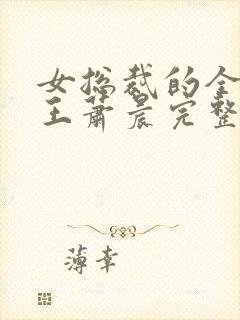 女总裁的全
王萧晨完整
薄幸